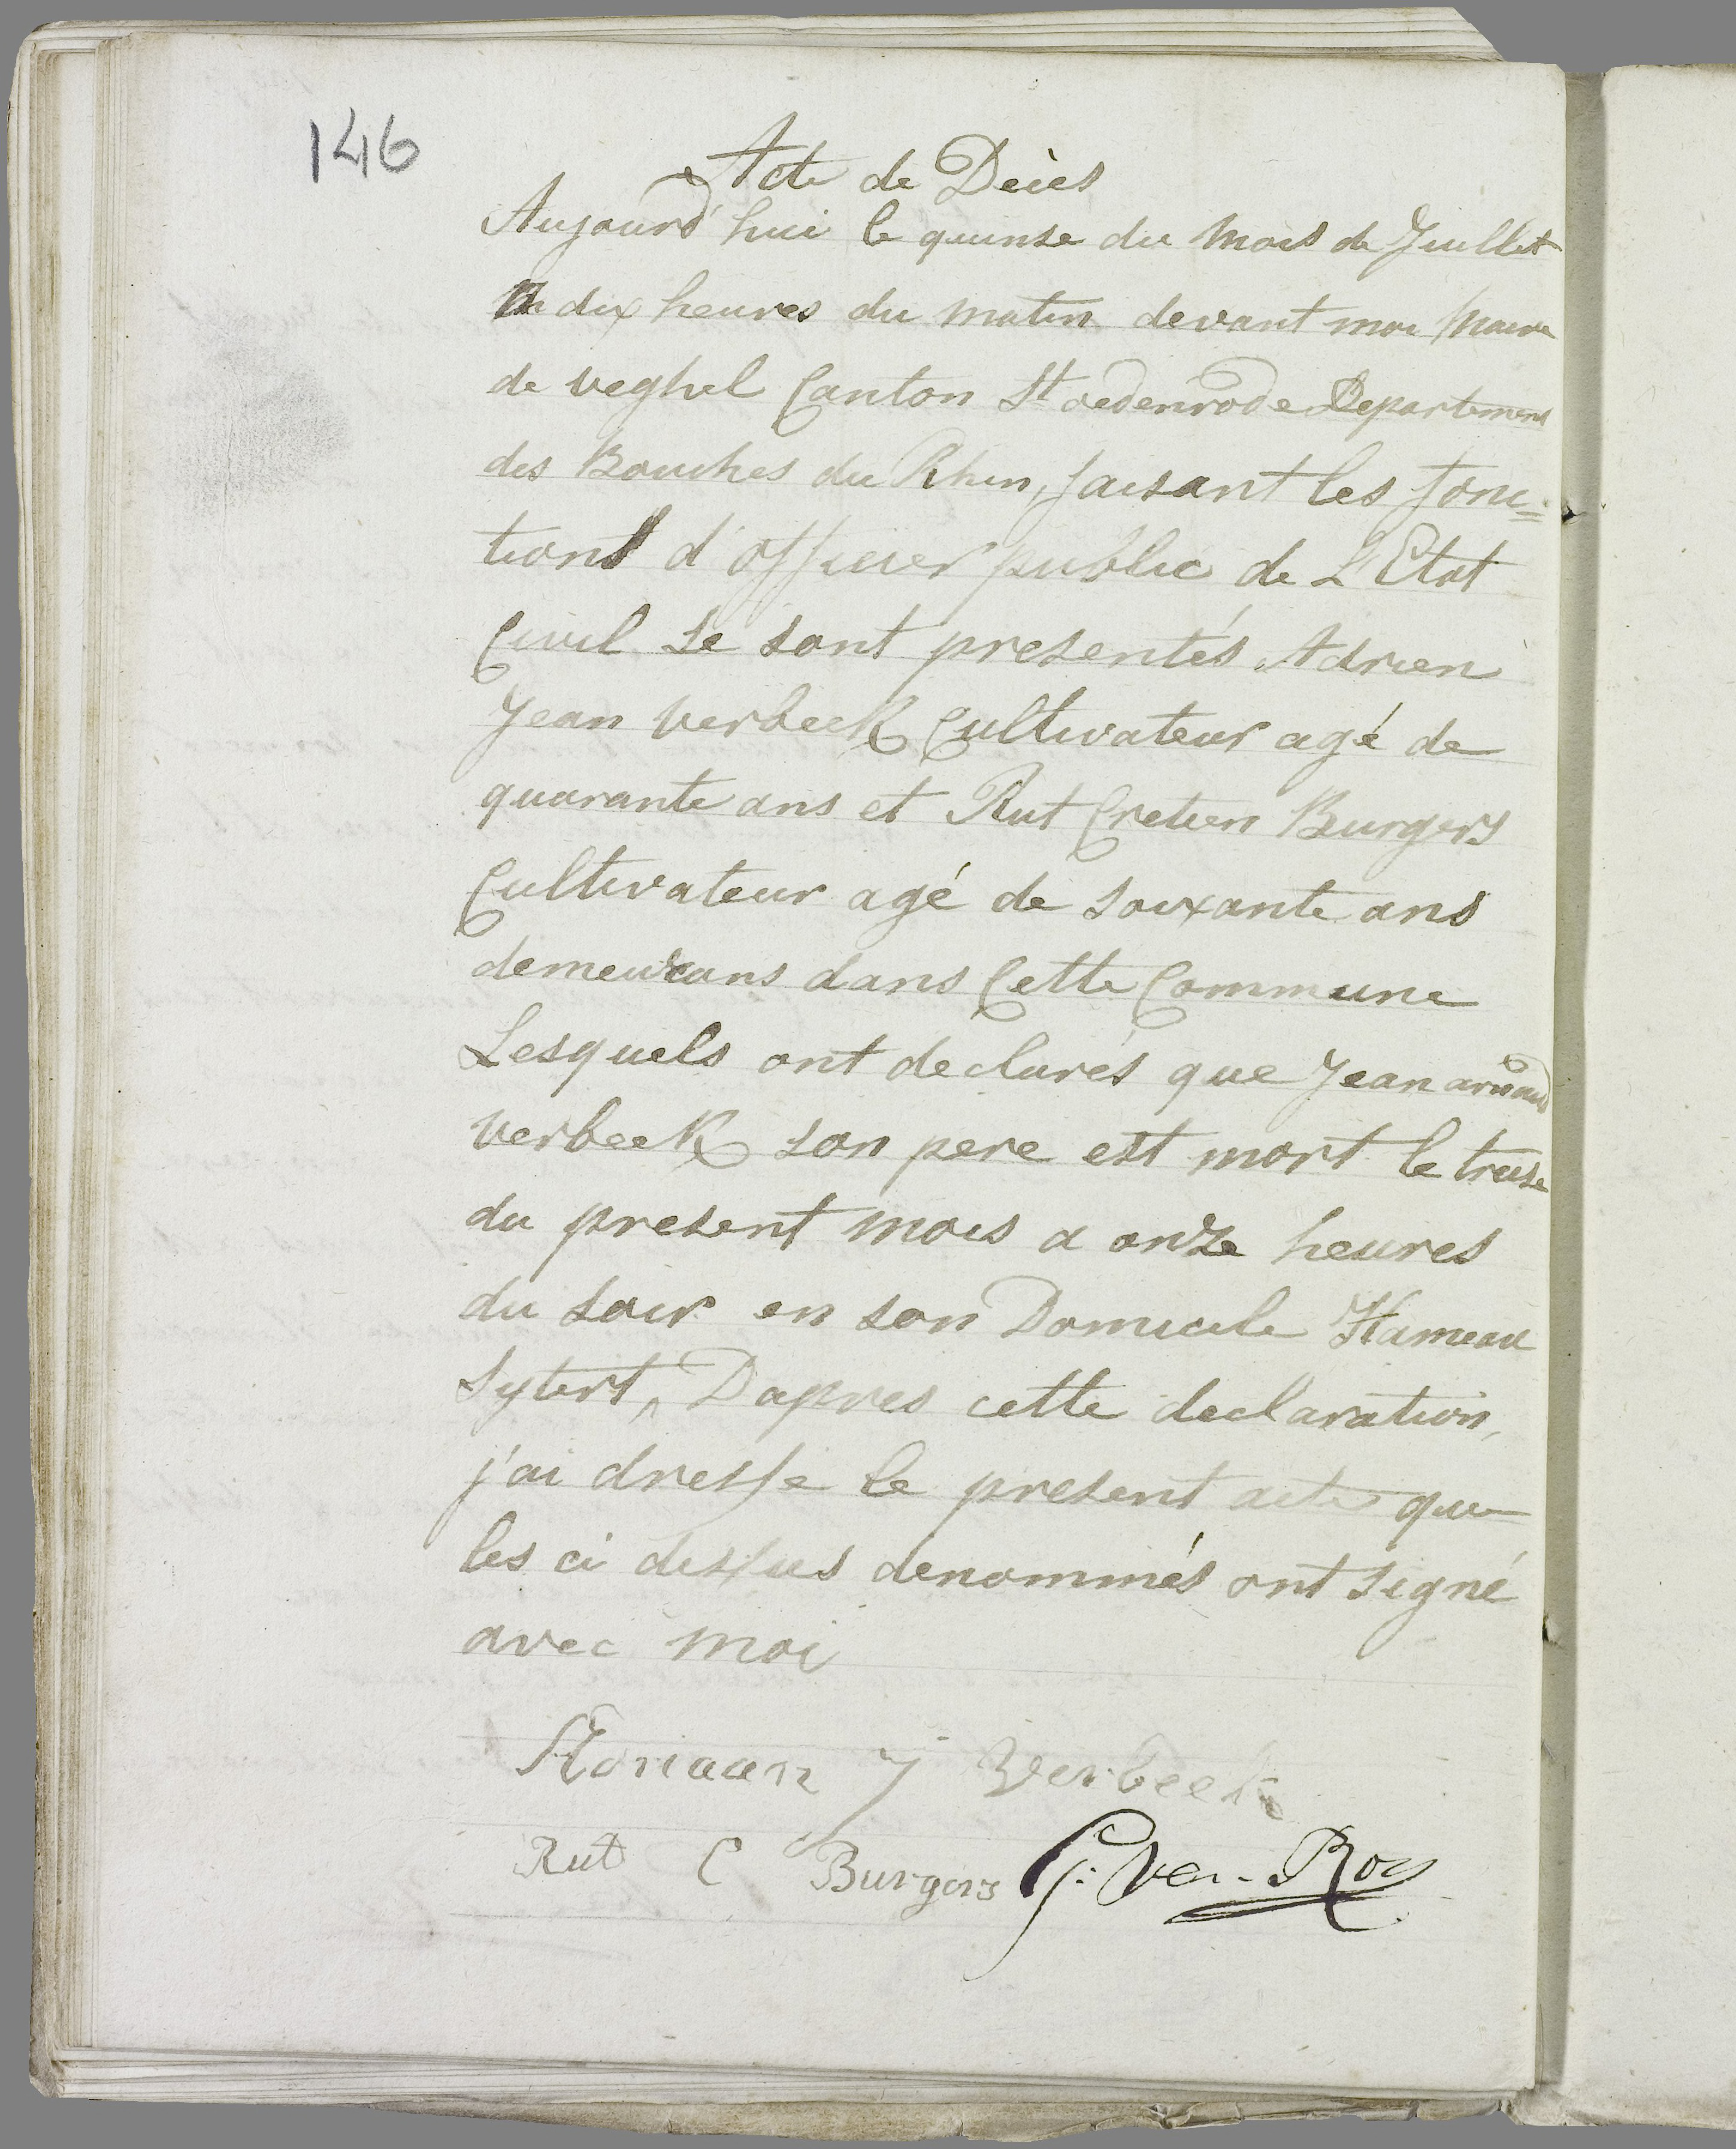 146
Acte de Décès
Aujourd'hui le quinse du Mois de Juillet
a dix heures du matin devant moi Maire
de veghel Canton St oedenrode Departement
des Bouches du Rhin, faisant les fonc=
tions d'officier public de L'Etat
Civil se sont presentés Adrien
Jean verbeek Cultivateur agé de
quarante ans et Rut Cretien Burgers
Cultivateur agé de soixante ans
demeurans dans Cette Commune
Lesquels ont declarés que Jean
verbeek son pere est mort le treise
du present mois a onze heures
du soir en son Domicile Hameau
Sytert, Dapres cette declaration,
j'ai dresse le present acte que
les ci dessus denommés ont signé
avec moi
Adriaan J Verbeek
Rut C Burgers G: Ver-Roy